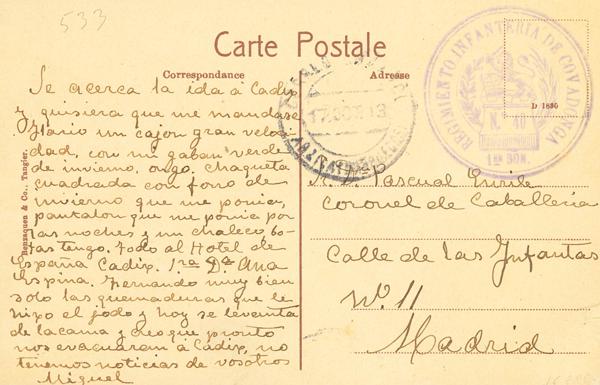 533
Carte Postale
Correspondance
Adresse
Se acerca la ida á Cadiz
y quisiera que me mandase
Mario un cajon gran veloci
dad, con mi gaban verde
de invierno, ongo, chaqueta
cuadrada con forro de
invierno que me ponia,
pantalon que me ponia por
las noches y un chaleco, bo-
tas tengo. Todo al Hotel de
España Cadiz. 1ra Dª Ana
Espina. Fernando muy bien
solo las quemaduras que le
hizo el yodo y hoy se levanta
de la cama y creo que pronto
nos evacuaran á Cadiz, no
tenemos noticias de vosotros
Miguel
Benzaquen & Co., Tangier.
17 OCT 13
REGIMIENTO INFANTERIA DE COVADONGA
N. 40
1er BON.
D 1830
Pascual Enrile
Coronel de Caballeria
Calle de las Infantas
Nº 11
Madrid